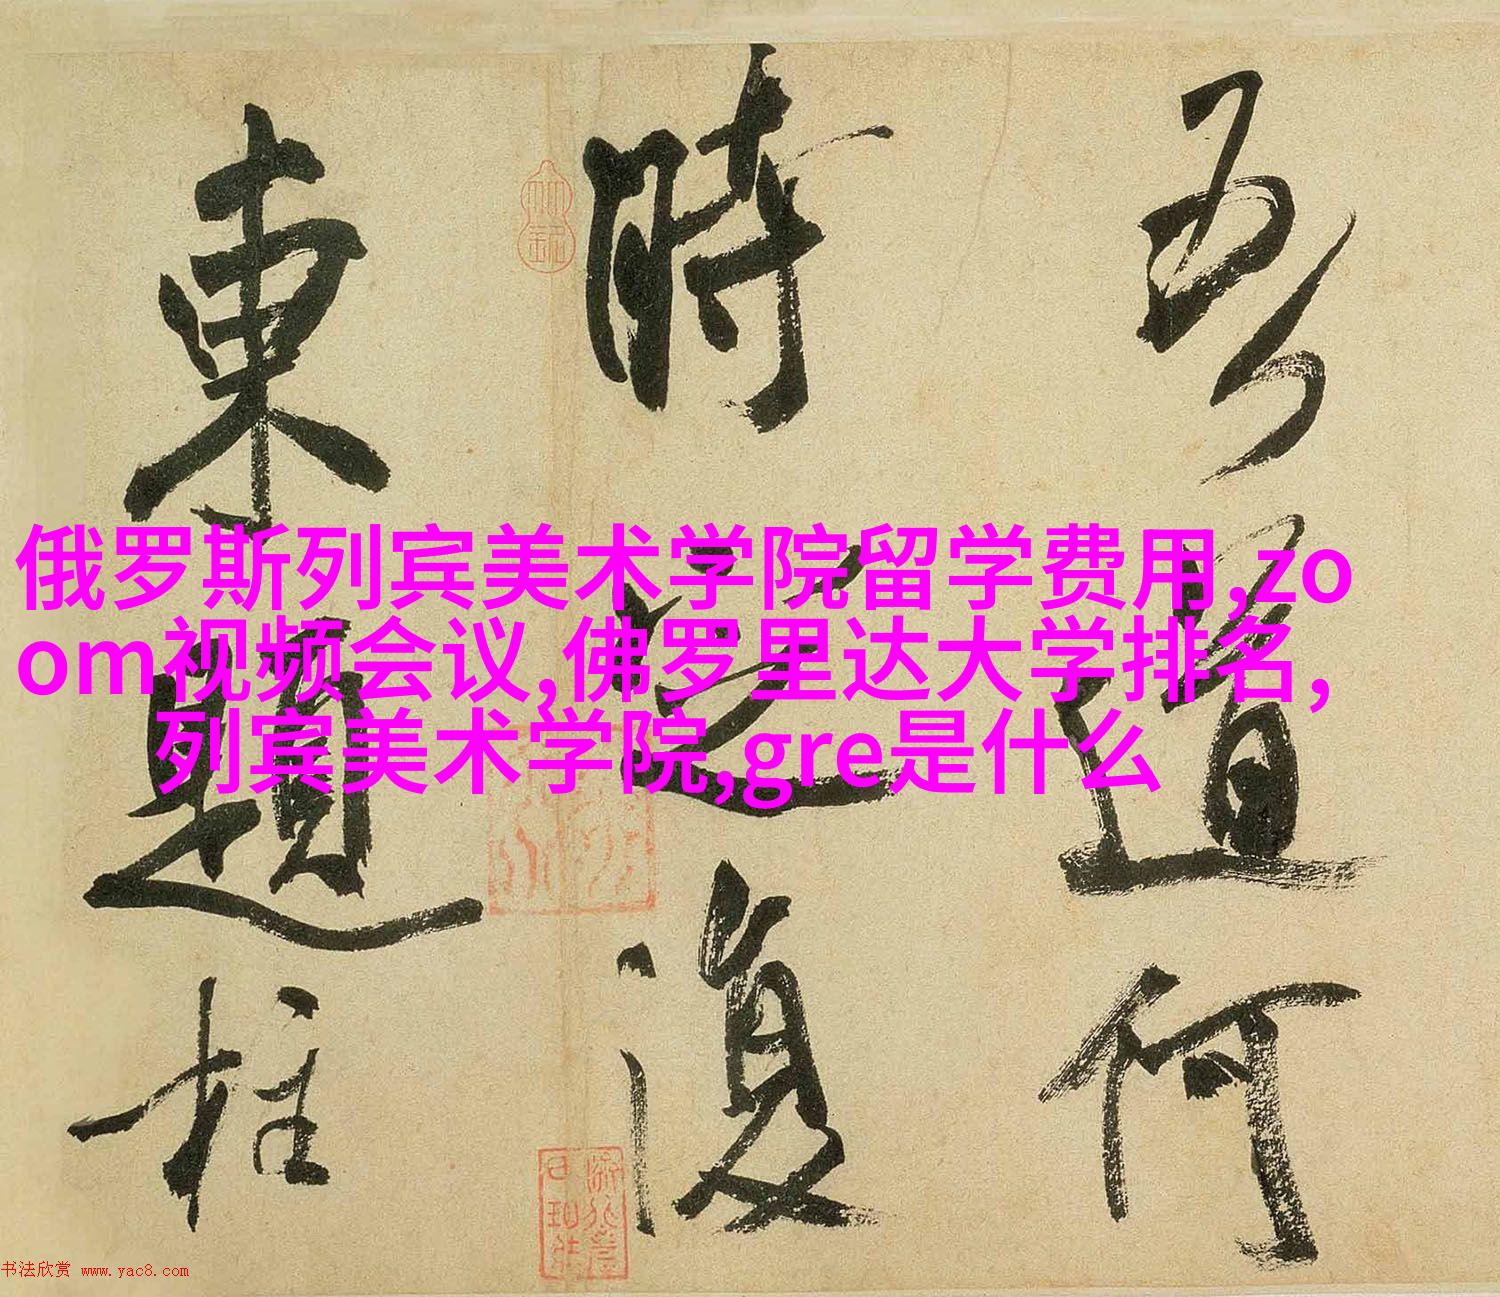 吾道何
時之復
東題柱
俄罗斯列宾美术学院留学费用,zo
om视频会议,佛罗里达大学排名,
列宾美术学院,gre是什么
书法欣赏 www.yac8.com